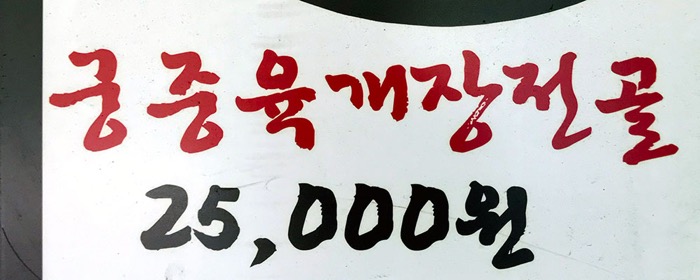 궁중육개장전골
25,000원